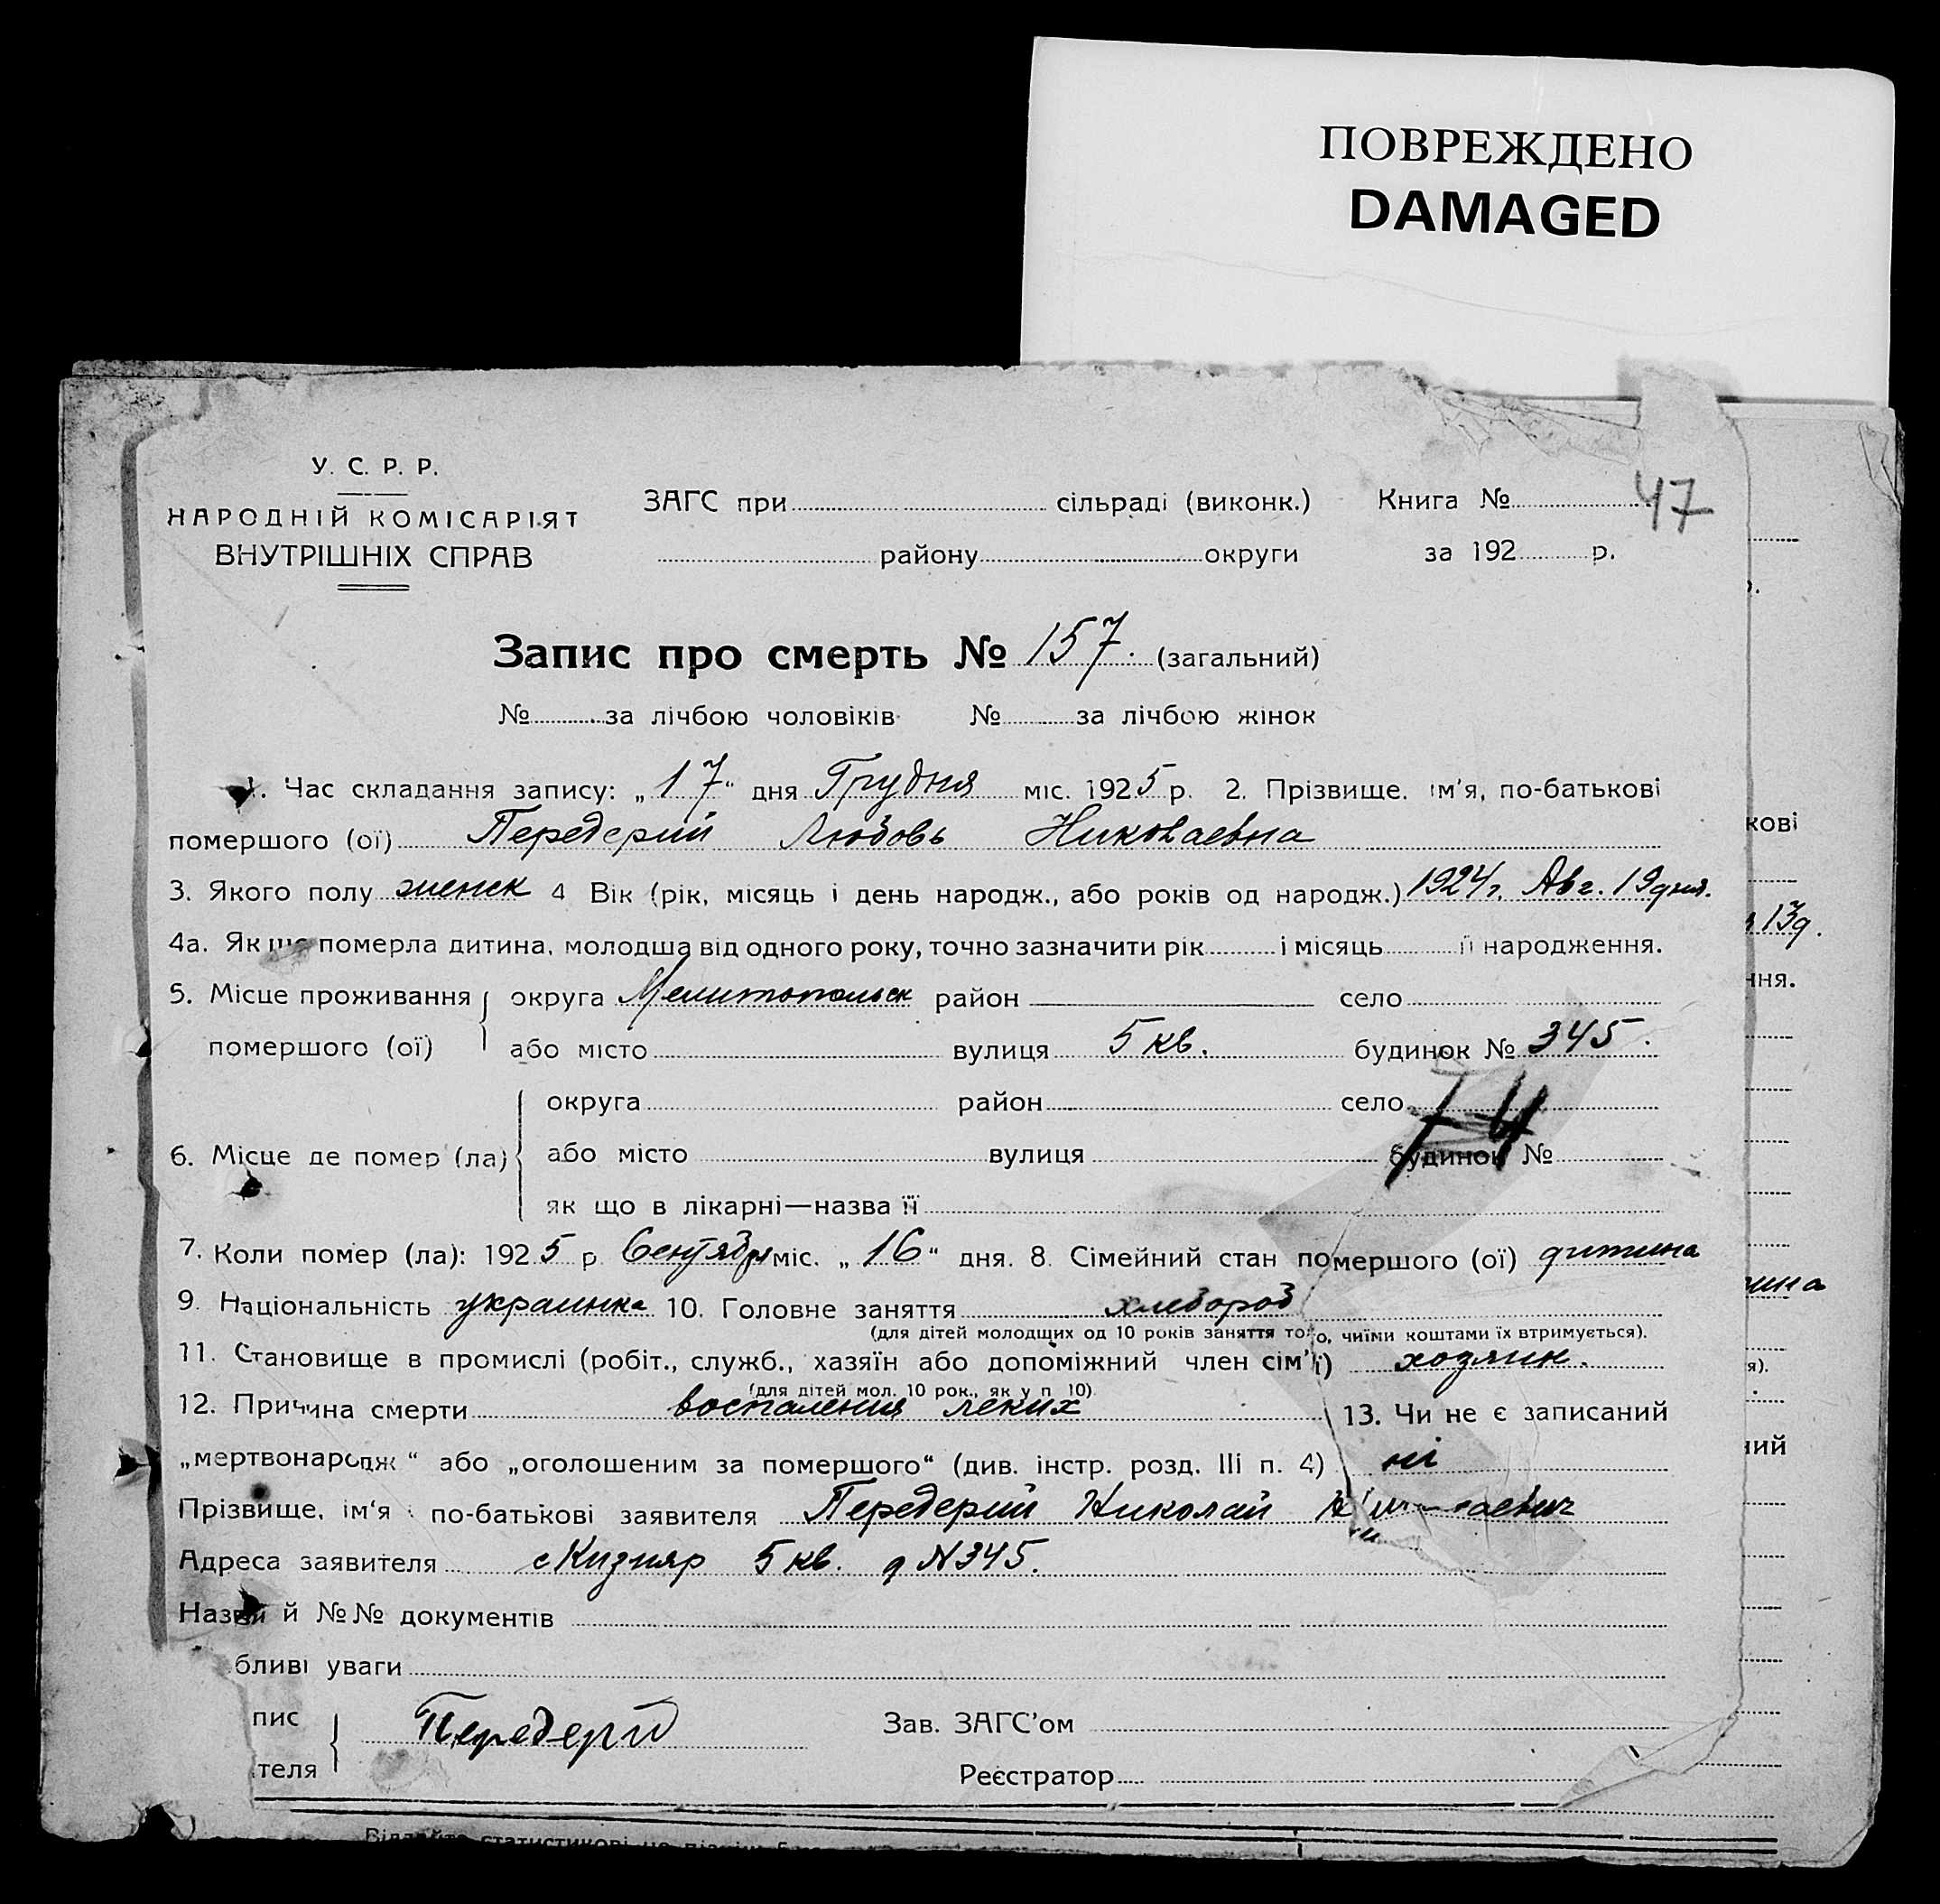 ПОВРЕЖДЕНО
DAMAGED
У. С. Р. Р.
НАРОДНІЙ КОМІСАРІЯТ
ВНУТРІШНІХ СПРАВ
ЗАГС при сільраді (виконк.) Книга № 47
району округи за 192 р.
Запис про смерть № 157. (загальний)
№ за лічбою чоловіків № за лічбою жінок
1. Час складання запису: „17“ дня Грудня міс. 1925 р. 2. Прізвище, ім'я, по-батькові
помершого (ої) Передерий Любовь Николаевна
3. Якого полу женск 4 Вік (рік, місяць і день народж., або років од народж.) 1924 г. Авг. 19 дня.
4а. Як що померла дитина, молодша від одного року, точно зазначити рік і місяць її народження.
5. Місце проживання округа Мелитопольск район село
помершого (ої) або місто вулиця 5 кв. будинок № 345.
округа район село
6. Місце де помер (ла) або місто вулиця будинок №
як що в лікарні—назва її
7. Коли помер (ла): 1925 р. Сентября міс. „16“ дня. 8. Сімейний стан помершого (ої) дитина
9. Національність украинка 10. Головне заняття хлебороб
(для дітей молодших од 10 років заняття того, чиїми коштами їх втримується).
11. Становище в промислі (робіт., служб., хазяїн або допоміжний член сім'ї) хозяин.
(для дітей мол. 10 рок., як у п. 10)
12. Причина смерти воспаления леких 13. Чи не є записаний
„мертвонародж“ або „оголошеним за помершого“ (див. інстр. розд. III п. 4) ні
Прізвище, ім'я і по-батькові заявителя Передерий Николай
Адреса заявителя с Кизияр 5 кв. д N 345.
Назви й №№ документів
бливі уваги
пис Передерій Зав. ЗАГС'ом
теля Реєстратор